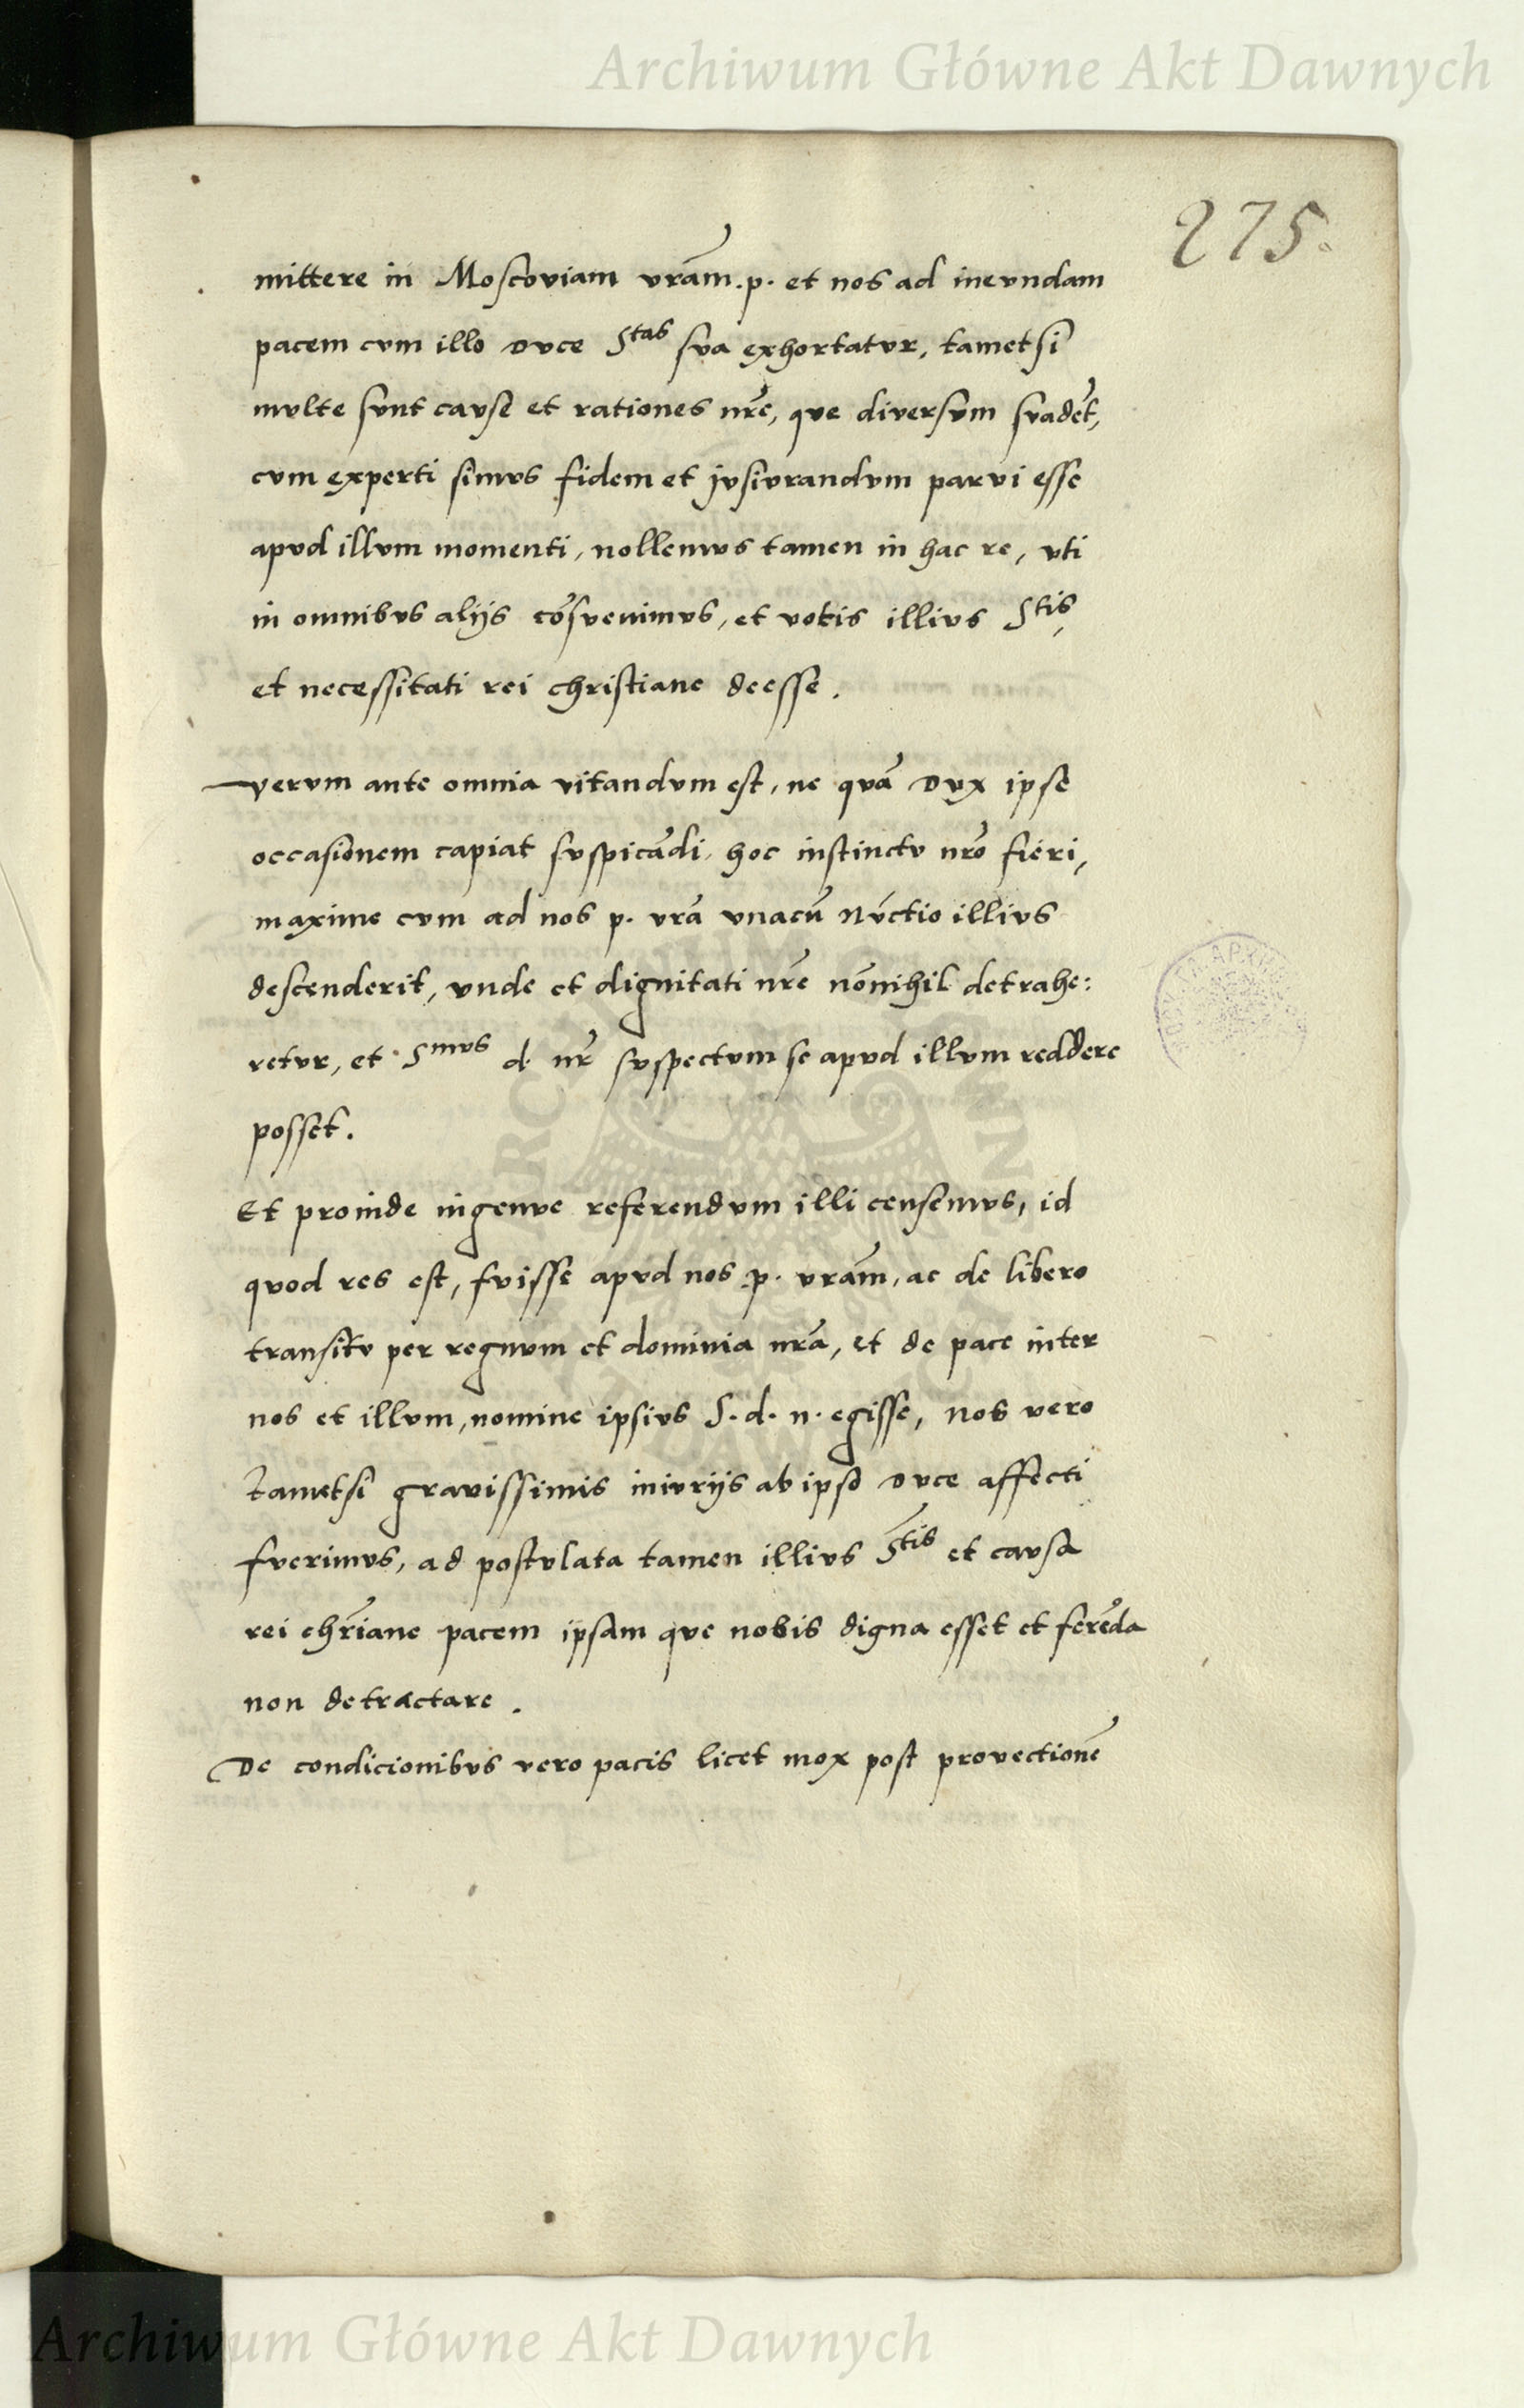 Archiwum Główne Akt Dawnych
275.
mittere in Moscoviam vram̃. p. et nos ad inevndam
pacem cvm illo dvce Stas sva exhortatvr, tametsi
mvlte svnt cavse et rationes nr̃e, qve diversvm svadẽt,
cvm experti simvs fidem et jvsivrandvm parvi esse
apvd illvm momenti, nollemvs tamen in hac re, vti
in omnibvs alijs cõsvevimvs, et votis illivs Stis,
et necessitati rei christiane deesse.
vervm ante omnia vitandvm est, ne qvã dvx ipse
occasionem capiat svspicãdi, hoc instinctv nr̃o fieri,
maxime cvm ad nos p. vrã vnacũ Nṽctio illivs
descenderit, vnde et dignitati nr̃e nõnihil detrahe:
retvr, et Smvs d. nr̃ svspectvm se apvd illvm reddere
posset.
Et proinde ingenve referendvm illi censemvs, id
qvod res est, fvisse apvd nos p. vram̃, ac de libero
transitv per regnvm et dominia nrã, et de pace inter
nos et illvm, nomine ipsivs S. d. n. egisse, nos vero
tametsi gravissimis inivrijs ab ipso dvce affecti
fverimvs, ad postvlata tamen illivs Stis et cavsa
rei chr̃iane pacem ipsam qve nobis digna esset et ferẽda
non detractare.
De condicionibvs vero pacis licet mox post provectionẽ
Archiwum Główne Akt Dawnych